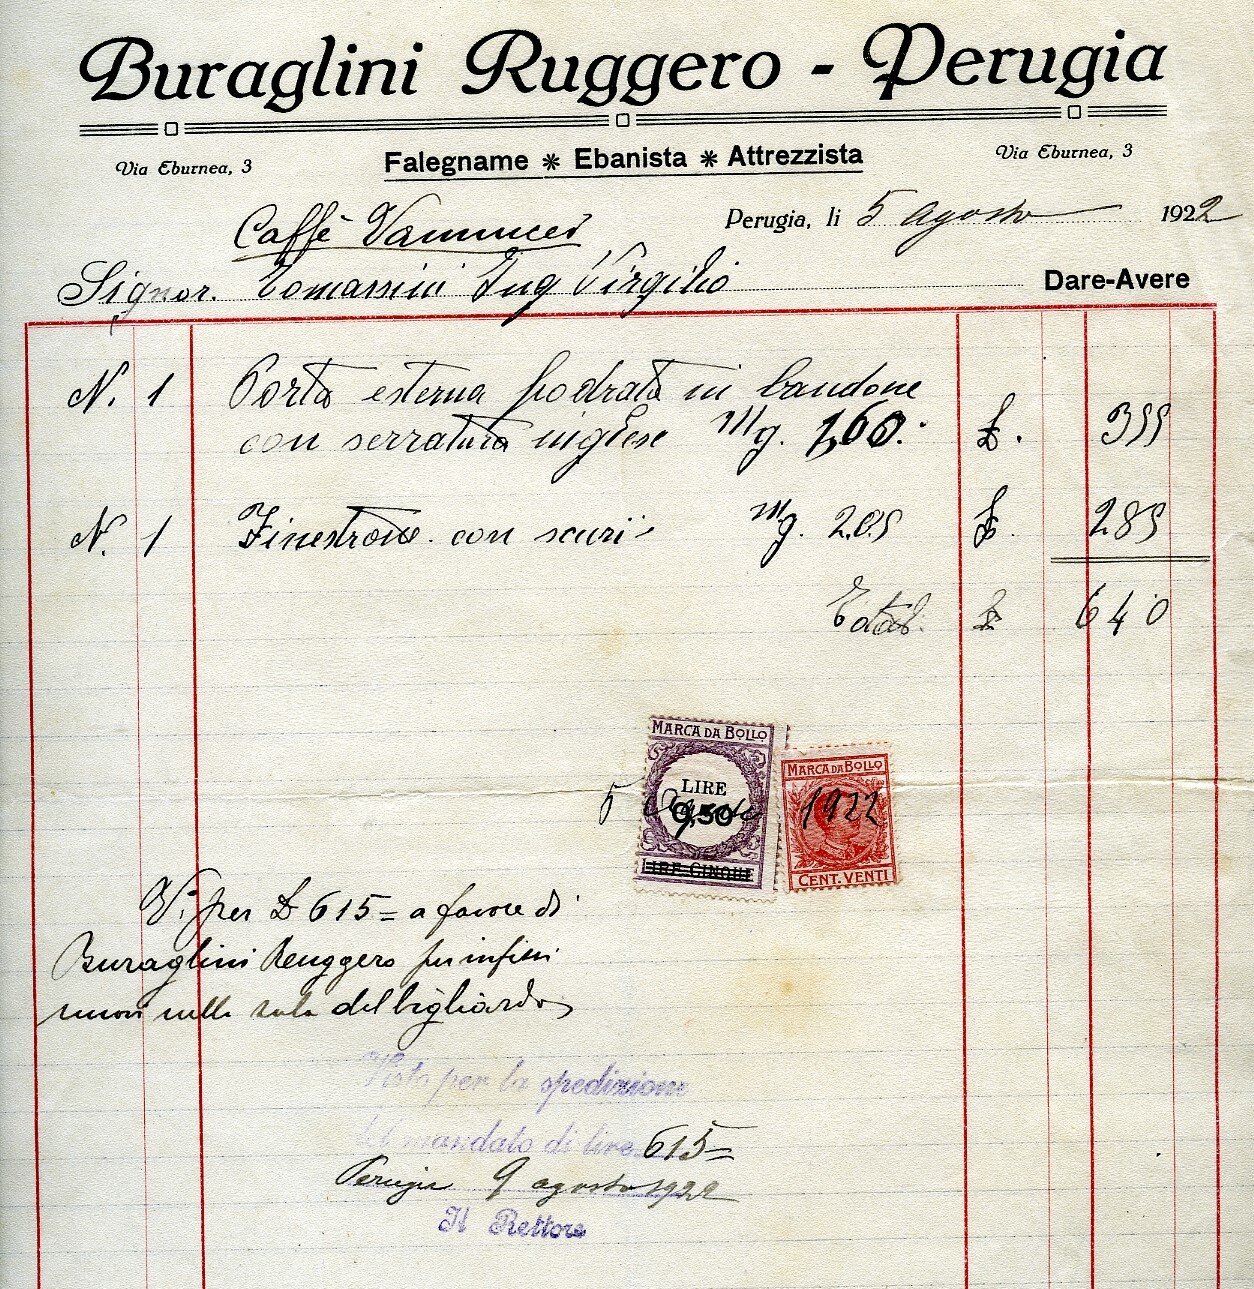 Buraglini Ruggero - Perugia
Via Eburnea, 3
Falegname * Ebanista * Attrezzista
Via Eburnea, 3
Caffè Vannucci
Perugia, li 5 agosto 1922
Signor. Tomassini Ing Virgilio
Dare-Avere
N. 1 Porta esterna fodrata in bandone
con serratura inglese mq. 1,60. £. 355
N. 1 Finestrone con scuri mq. 2.05 £. 285
Total. £ 640
MARCA DA BOLLO
LIRE
0,50
LIRE CINQUE
MARCA DA BOLLO
CENT. VENTI
5 Agosto 1922
V. per £ 615= a favore di
Buraglini Ruggero per infissi
nuovi nella sala del bigliardo
Visto per la spedizione
del mandato di lire 615=
Perugia 9 agosto 1922
Il Rettore